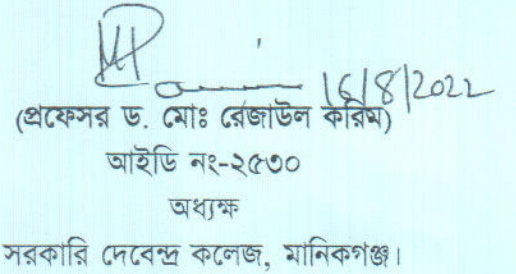 16/8/2022
(প্রফেসর ড. মোঃ রেজাউল করিম)
আইডি নং-২৫৩০
অধ্যক্ষ
সরকারি দেবেন্দ্র কলেজ, মানিকগঞ্জ।